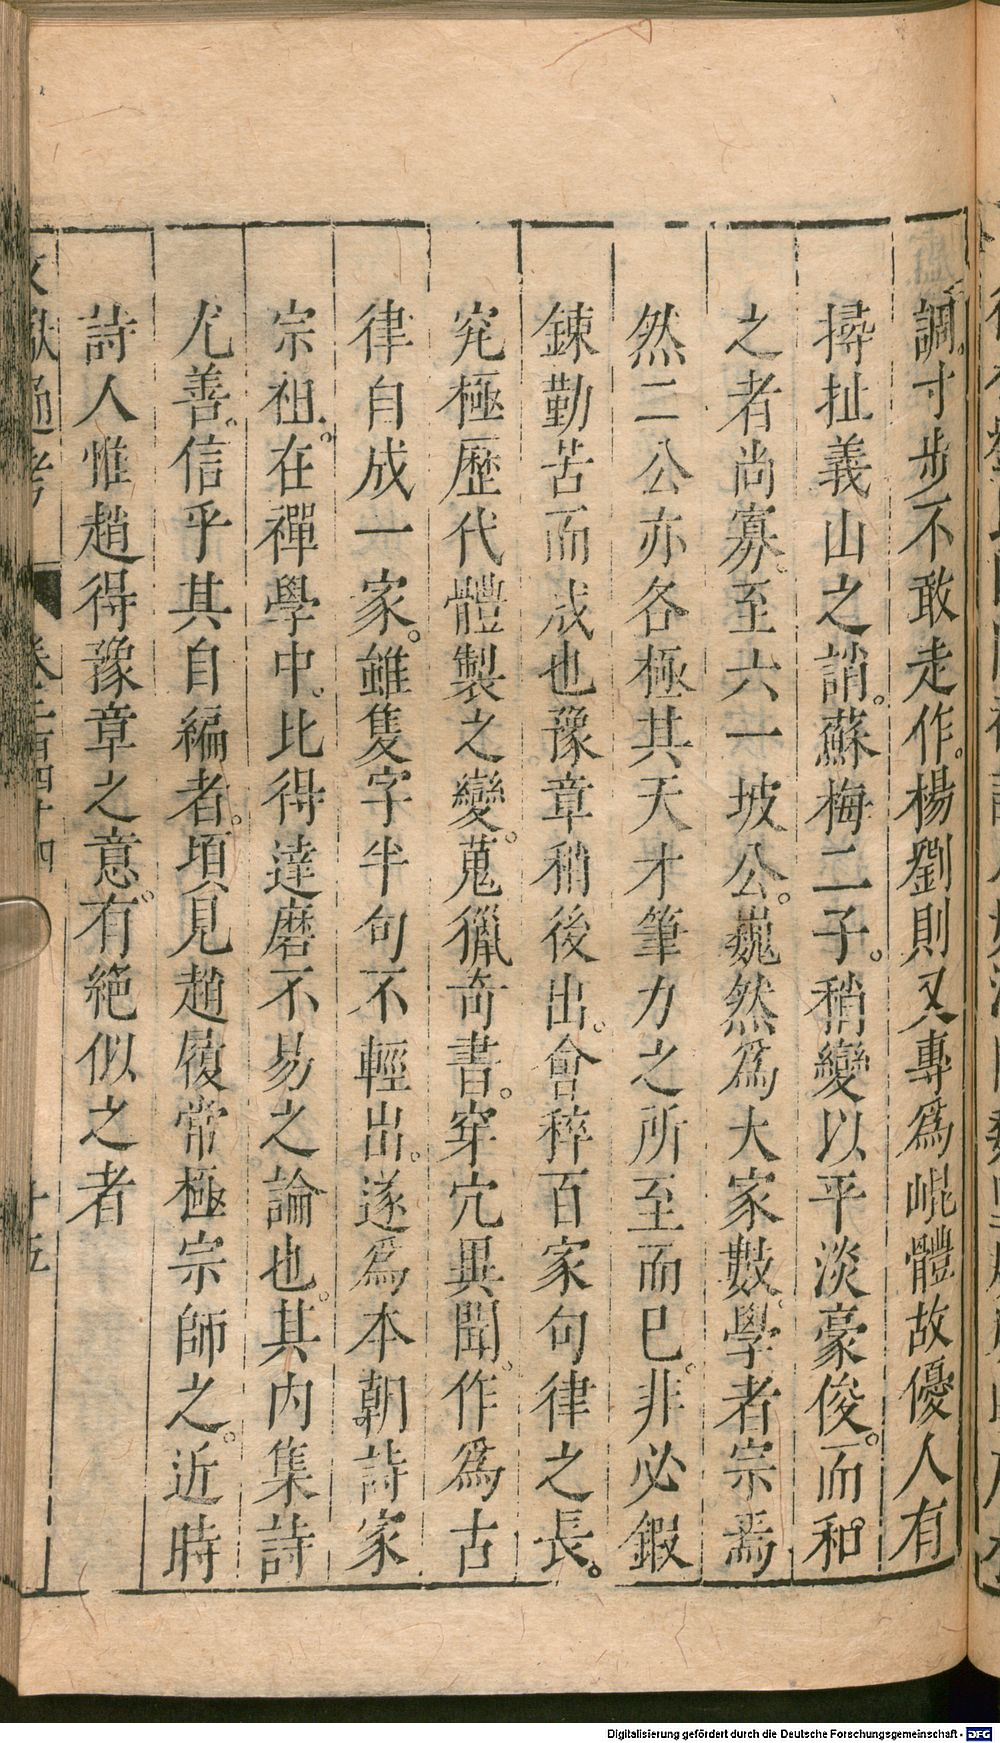 調。寸步不敢走作。楊劉則又專爲崐體故優人有
撏扯義山之誚。蘇梅二子。稍變以平淡豪俊。而和
之者尚寡。至六一坡公。巍然爲大家數。學者宗焉
然二公亦各極其天才筆力之所至而已。非必鍜
鍊勤苦而成也豫章稍後出。會稡百家句律之長。
究極歷代體製之變。蒐獵奇書。穿穴異聞。作爲古
律自成一家。雖隻字半句不輕出。遂爲本朝詩家
宗祖。在禪學中。比得達磨不易之論也。其内集詩
尤善。信乎其自編者。頃見趙履常極宗師之。近時
詩人惟趙得豫章之意。有絶似之者
文獻通考 卷二百四十四 十五
Digitalisierung gefördert durch die Deutsche Forschungsgemeinschaft - DFG